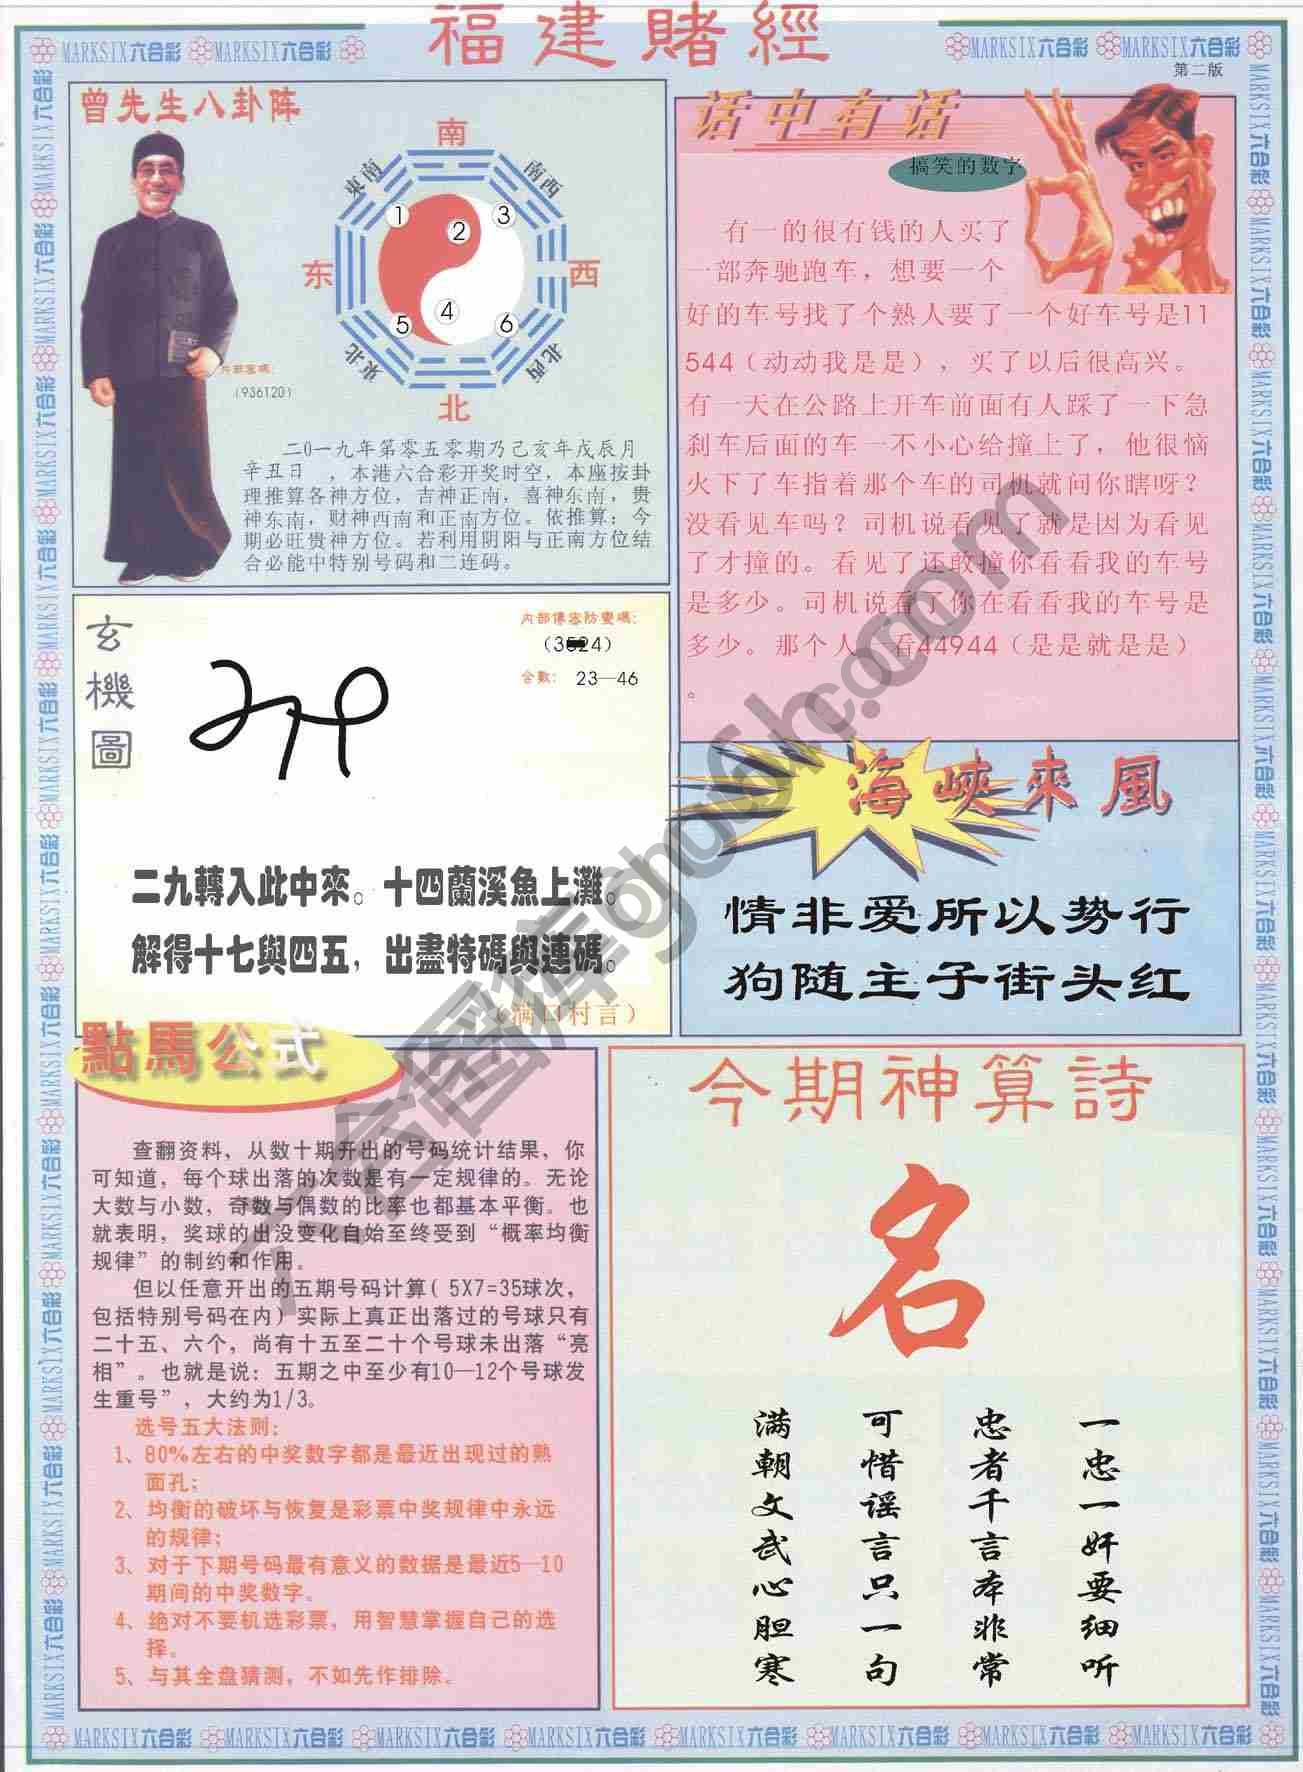 福建賭經
MARKSIX六合彩 MARKSIX六合彩
MARKSIX六合彩 MARKSIX六合彩
第二版
曾先生八卦阵
南
東南
南西
1
2
3
东
西
4
5
6
東北
北西
北
内部密碼:
(936120)
二0一九年第零五零期乃己亥年戊辰月
辛丑日 ，本港六合彩开奖时空，本座按卦
理推算各神方位，吉神正南，喜神东南，贵
神东南，财神西南和正南方位。依推算：今
期必旺贵神方位。若利用阴阳与正南方位结
合必能中特别号码和二连码。
话中有话
搞笑的数字
有一的很有钱的人买了
一部奔驰跑车，想要一个
好的车号找了个熟人要了一个好车号是11
544（动动我是是），买了以后很高兴。
有一天在公路上开车前面有人踩了一下急
刹车后面的车一不小心给撞上了，他很恼
火下了车指着那个车的司机就问你瞎呀？
没看见车吗？司机说看见了就是因为看见
了才撞的。看见了还敢撞你看看我的车号
是多少。司机说看了你在看看我的车号是
多少。那个人一看44944（是是就是是）
。
玄機圖
内部傳密防變碼:
(3524)
合數： 23—46
二九轉入此中來。十四蘭溪魚上灘。
解得十七與四五，出盡特碼與連碼。
（满口村言）
海峽來風
情非爱所以势行
狗随主子街头红
點馬公式
查翻资料，从数十期开出的号码统计结果，你
可知道，每个球出落的次数是有一定规律的。无论
大数与小数，奇数与偶数的比率也都基本平衡。也
就表明，奖球的出没变化自始至终受到“概率均衡
规律”的制约和作用。
但以任意开出的五期号码计算( 5X7=35球次，
包括特别号码在内）实际上真正出落过的号球只有
二十五、六个，尚有十五至二十个号球未出落“亮
相”。也就是说：五期之中至少有10—12个号球发
生重号”，大约为1/3。
选号五大法则：
1、80%左右的中奖数字都是最近出现过的熟
面孔；
2、均衡的破坏与恢复是彩票中奖规律中永远
的规律；
3、对于下期号码最有意义的数据是最近5—10
期间的中奖数字。
4、绝对不要机选彩票，用智慧掌握自己的选
择。
5、与其全盘猜测，不如先作排除。
今期神算詩
名
一忠一奸要细听
忠者千言本非常
可惜谣言只一句
满朝文武心胆寒
MARKSIX六合彩 MARKSIX六合彩 MARKSIX六合彩 MARKSIX六合彩 MARKSIX六合彩 MARKSIX六合彩 MARKSIX六合彩 MARKSIX六合彩